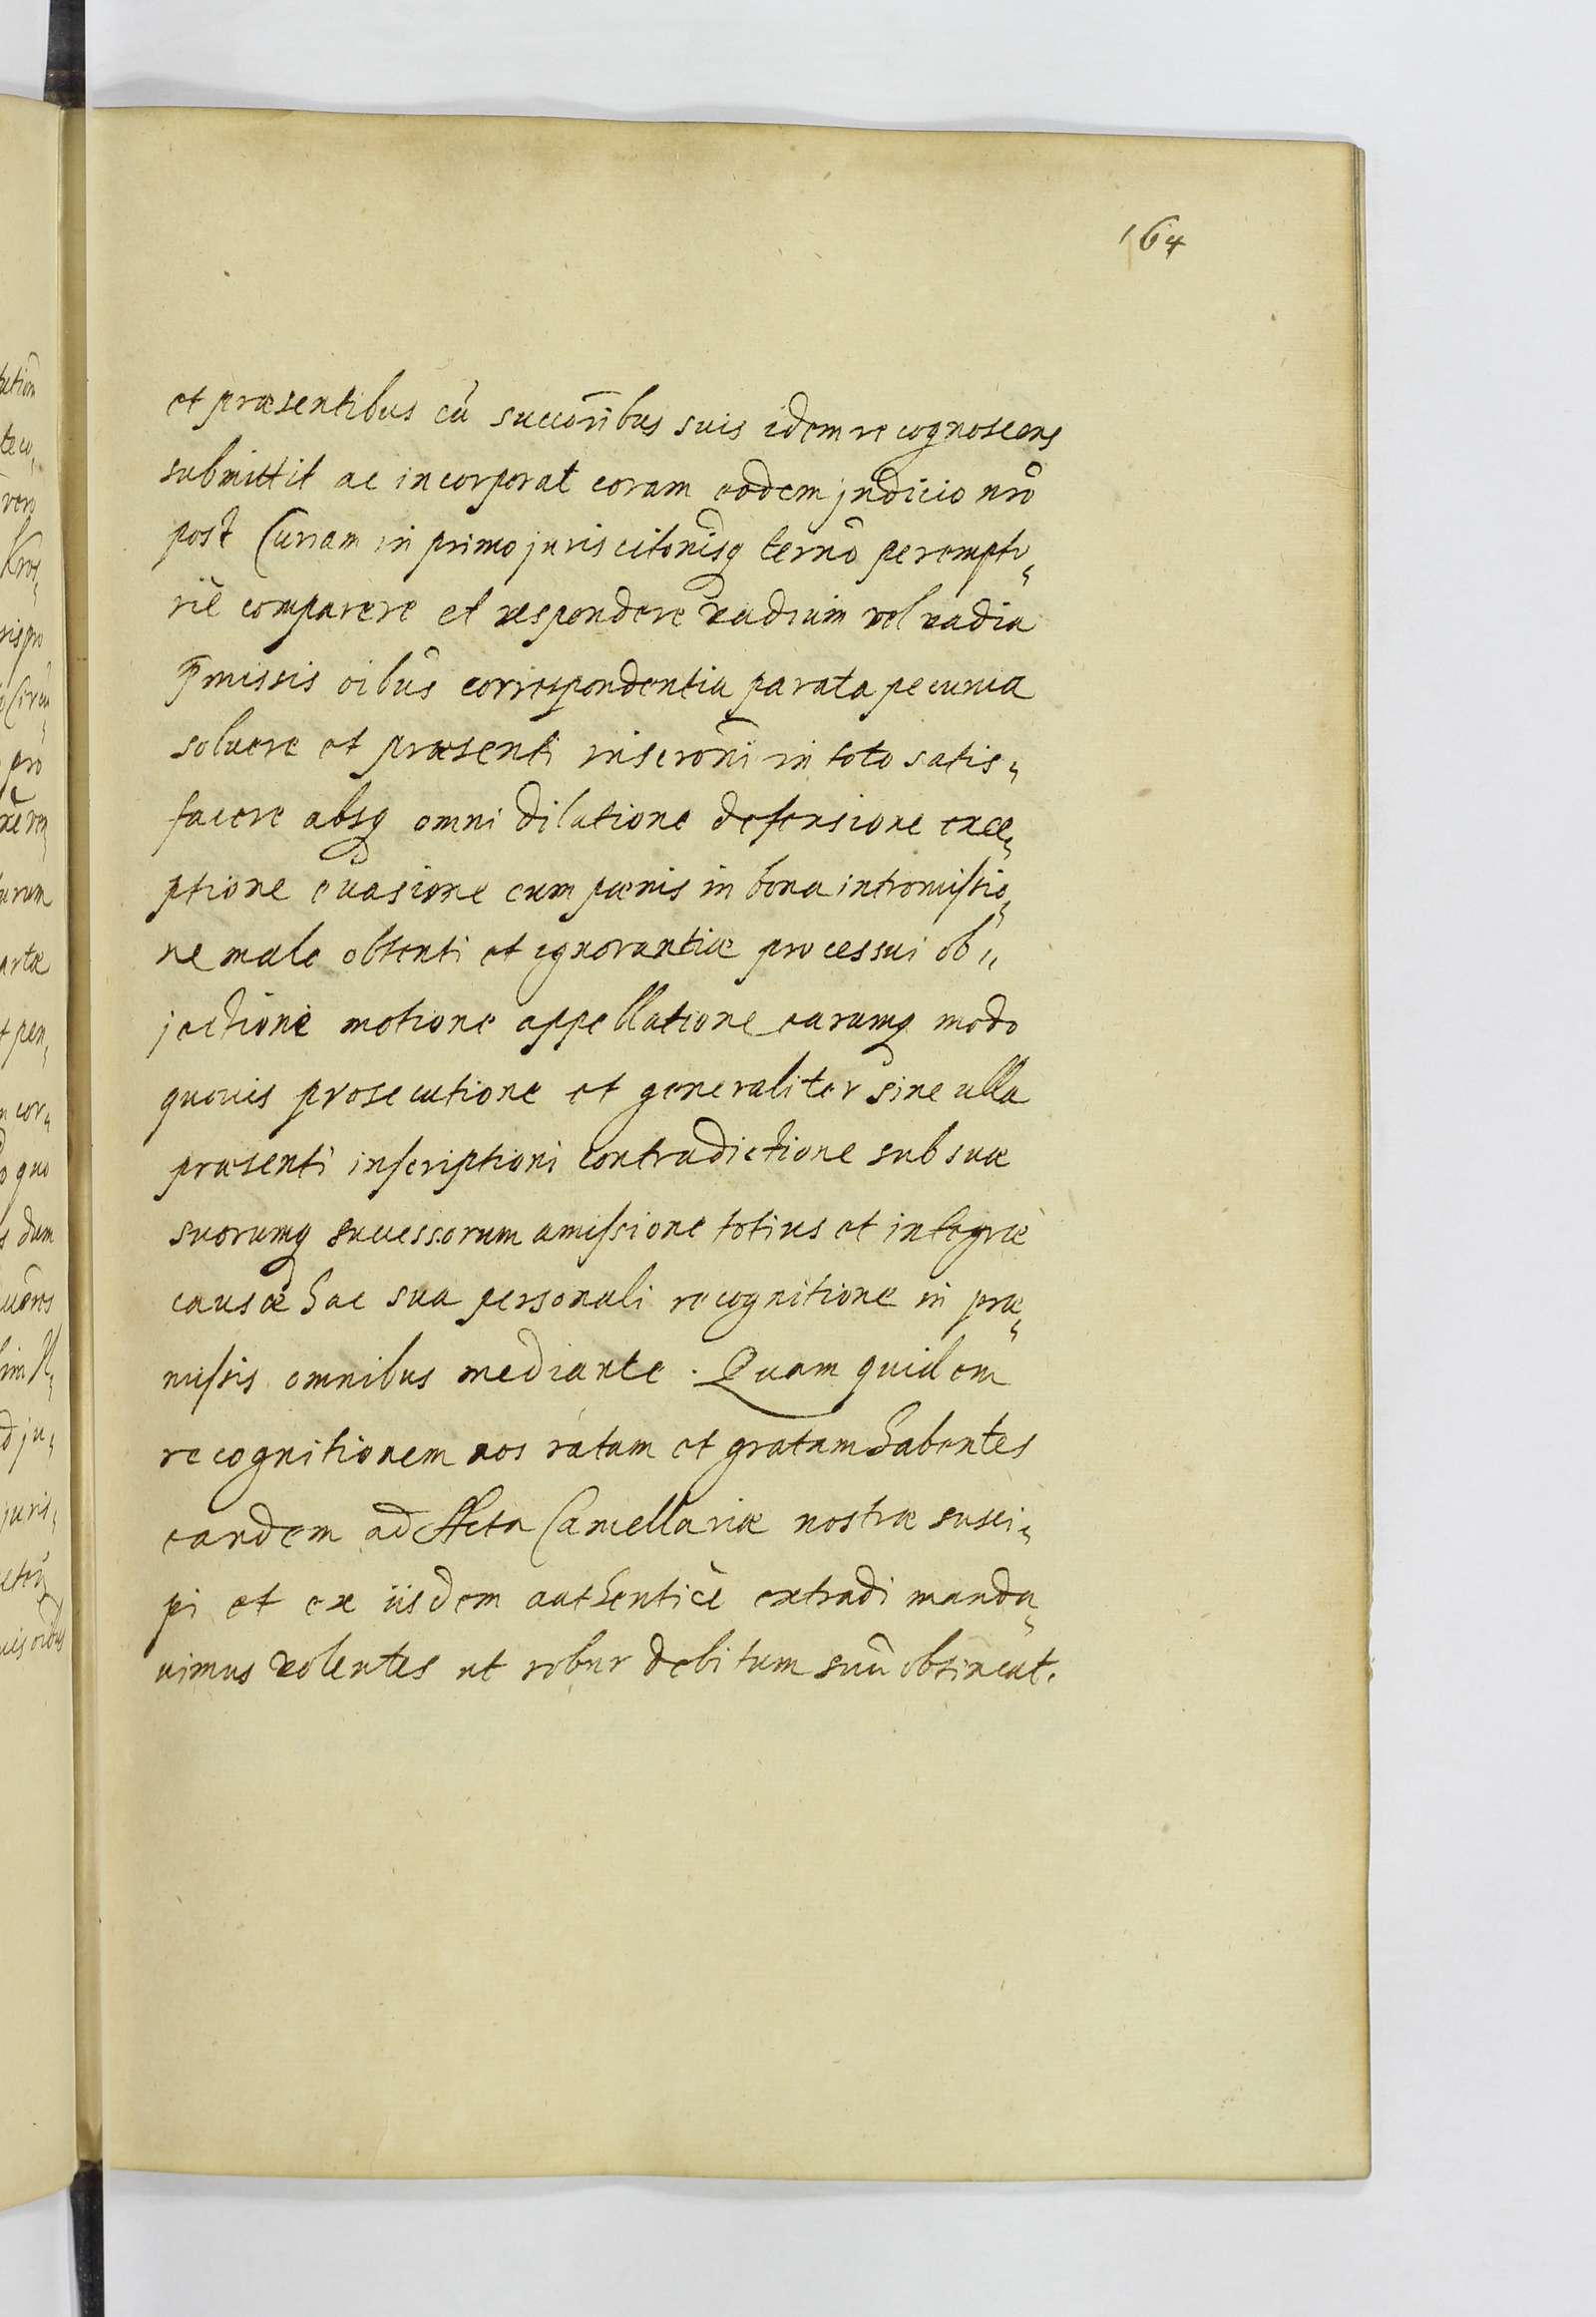 164
et præsentibus cũ succorĩbus suis idem recognoscens
submittit ac incorporat coram eodem judicio nrõ
post Curiam in primo juris citõnisq termõ perempto„
riè comparere et respondere vadium vel vadia
p̃missis oibũs correspondentia parata pecunia
soluere et præsenti inscrõni in toto satis„
facere absq omni dilatione defensione exce„
ptione euasione cum pœnis in bona intromissio„
ne male obtenti et ignorantiæ processui ob„
jectione motione appellatione earumq modo
quouis prosecutione et generaliter sine ulla
præsenti inscriptioni contradictione sub suæ
suorumq successorum amissione totius et integræ
causæ hac sua personali recognitione in præ„
missis omnibus mediante. Quam quidem
recognitionem nos ratam et gratam habentes
eandem ad Acta Cancellariæ nostræ susci„
pi et ex iisdem authenticè extradi manda„
uimus volentes ut robur debitum suũ obtineat.